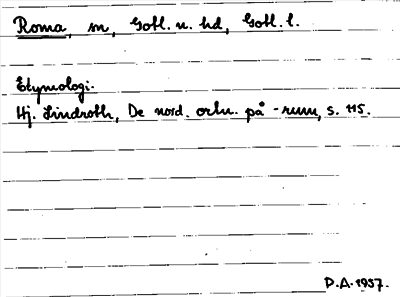 Roma, sn, Gotl. n. hd, Gotl. l.
Etymologi.
Hj. Lindroth, De nord. ortn. på -rum, s. 115.
D.A. 1957.